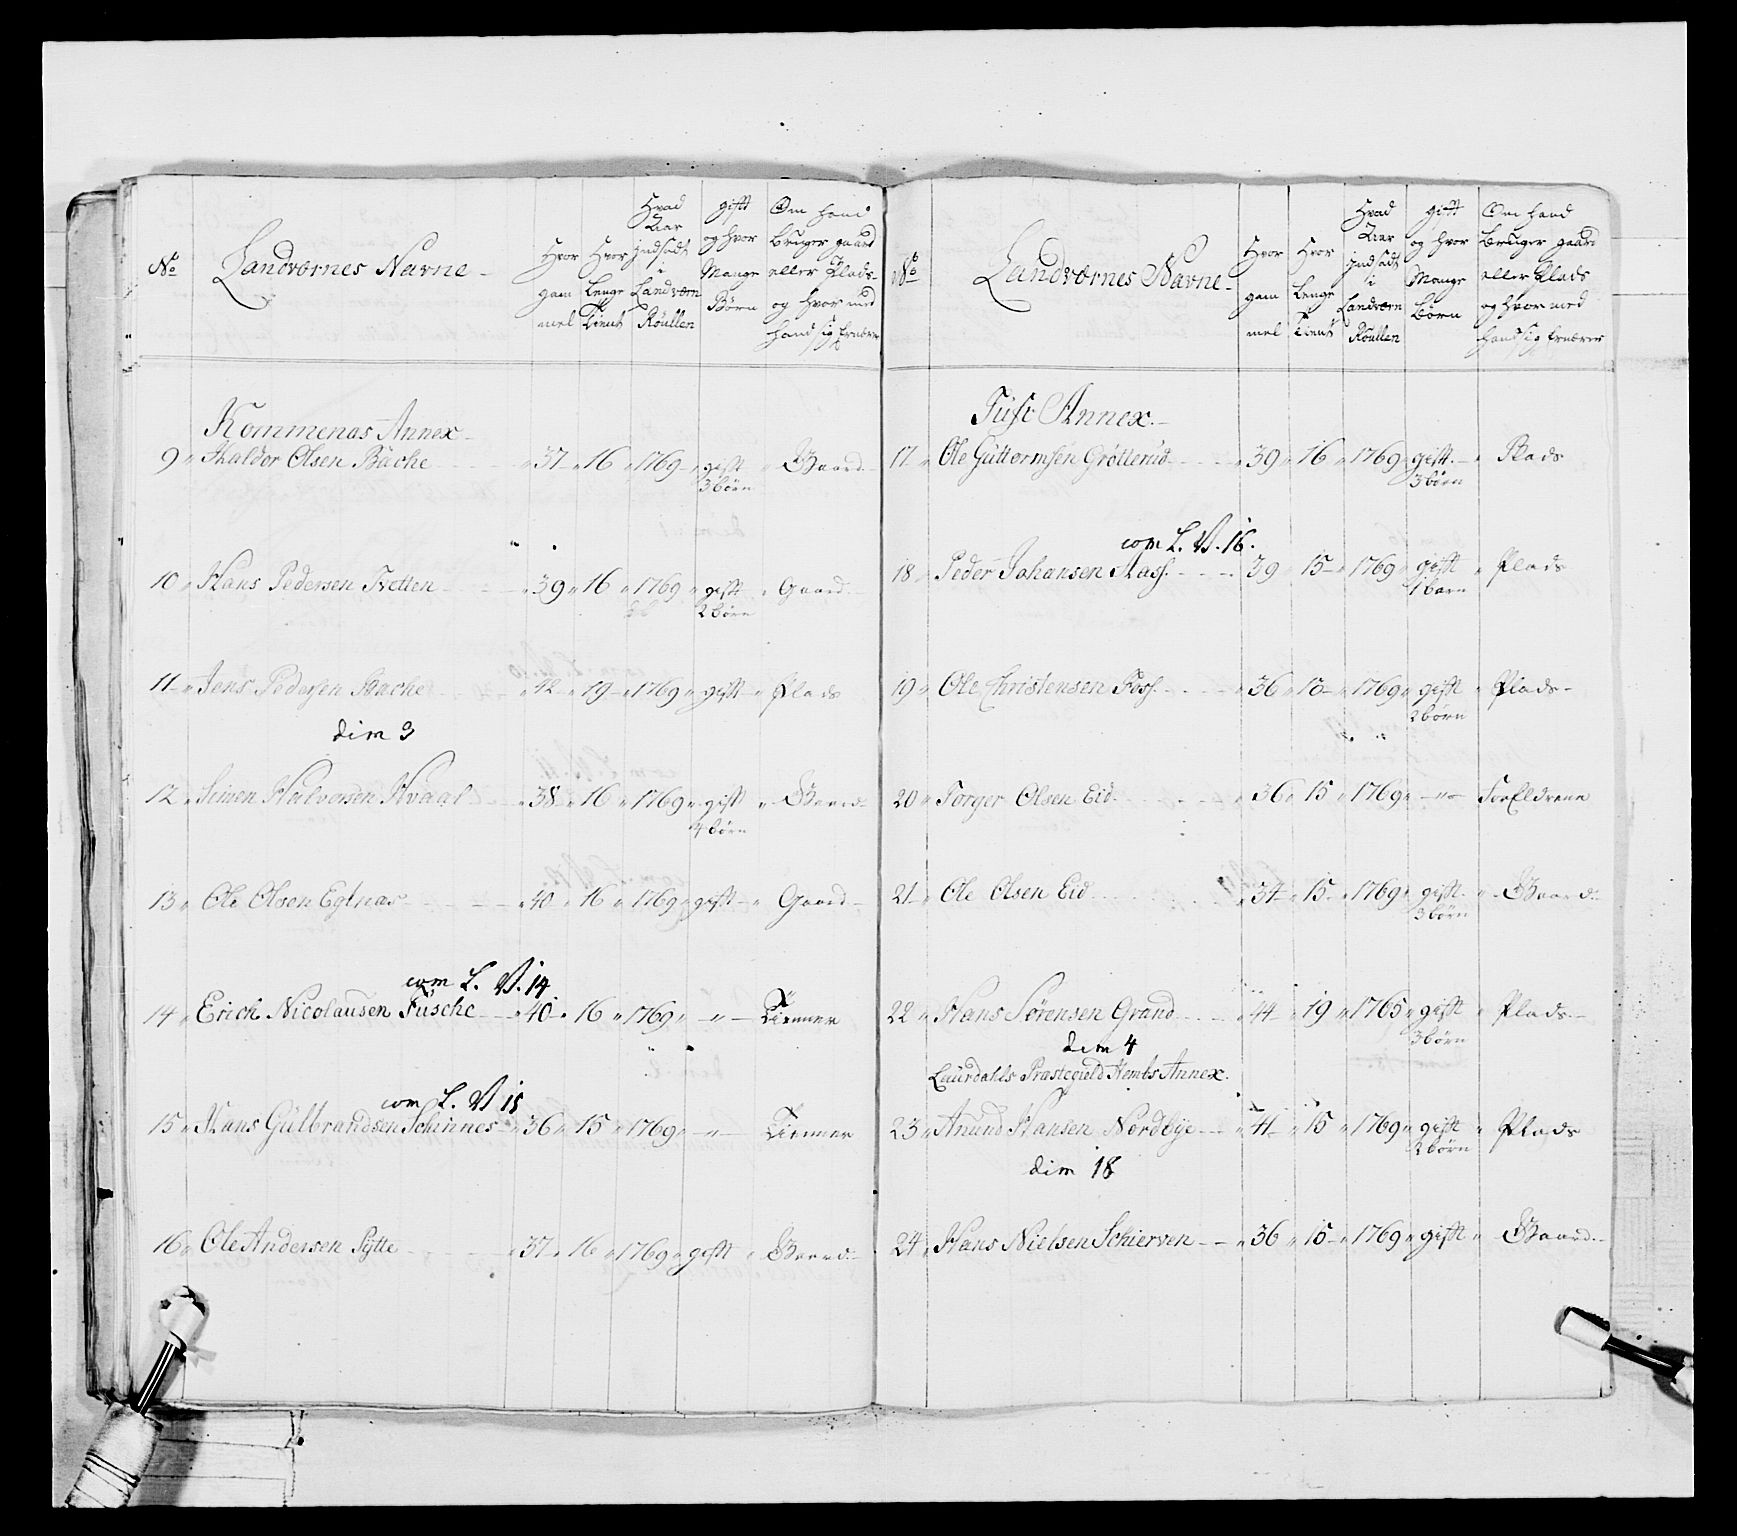 No
Landværnes Navne
Hvor gam mel
Hvor Lenge Tient
Hvad Aar Indsadt i Landværn Roullen
gift og hvor Mange Börn
Om hand Bruger gaard eller Plads og hvor med hand sig Ernærer
Kommenas Annex
9 Haldor Olsen Bache 37 16 1769 gift Gaard
3 börn
10 Hans Pedersen Tvetten 39 16 1769 gift Gaard
2 börn
11 Jens Pedersen Hache 42 19 1769 gift Plads
dim 3
12 Simen Halvorsen Hvaal 38 16 1769 gift Gaard
4 börn
13 Ole Olsen Egtnas 40 16 1769 gift Gaard
com L. V. 14
14 Erich Nicolausen Füsche 40 16 1769 -"- Tienner
com L. V 15
15 Hans Gulbrandsen Schinnes 36 15 1769 -"- Tienner
16 Ole Andersen Pÿtte 37 16 1769 gift Gaard
No
Landværnes Navne
Hvor gam mel
Hvor Lenge Tient
Hvad Aar Indsadt i Landværn Roullen
gift og hvor Mange Börn
Om hand Bruger gaard eller Plads og hvor med hand sig Ernærer
Annex
17 Ole Guttormsen Grötterud 39 16 1769 gift Plads
3 börn
com L. V. 16.
18 Peder Johansen Aass 39 15 1769 gift Plads
1 barn
19 Ole Christensen Foss 36 15 1769 gift Plads
2 börn
20 Torger Olsen Eid 36 15 1769 -"- Forældrene
21 Ole Olsen Eid 34 15 1769 gift Gaard
3 börn
22 Hans Sörensen Grand 44 19 1765 gift Plads
3 börn
dim 4
Laurdahls Præstegield Hembs Annex.
23 Anund Hansen Nordbye 41 15 1769 gift Plads
2 börn
dim 18
24 Hans Nielsen Schierven 36 15 1769 gift Gaard